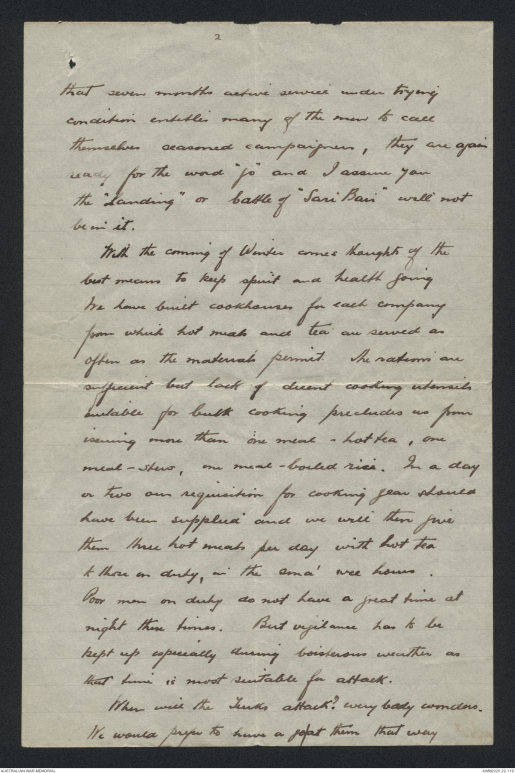 2
that seven months active service under trying
condition entitles many of the men to call
themselves seasoned campaigners, they are again
ready for the word "go" and I assure you
the "Landing" or battle of "Sari Bair" will not
be in it.
With the coming of Winter comes thoughts of the
best means to keep spirit and health going
We have built cookhouses for each company
from which hot meals and tea are served as
often as the materials permit. The rations are
sufficient but lack of decent cooking utensils
suitable for bulk cooking precludes us from
issuing more than one meal - hot tea, one
meal - stew, one meal - boiled rice. In a day
or two our requisition for cooking gear should
have been supplied and we will then give
them three hot meals per day with hot tea
to those on duty, in the sma' wee hours.
Poor men on duty do not have a great time at
night these times. But vigilance has to be
kept up especially during boisterous weather as
that time is most suitable for attack.
When will the Turks attack? every body wonders.
We would prefer to have a go at them that way
AUSTRALIAN WAR MEMORIAL